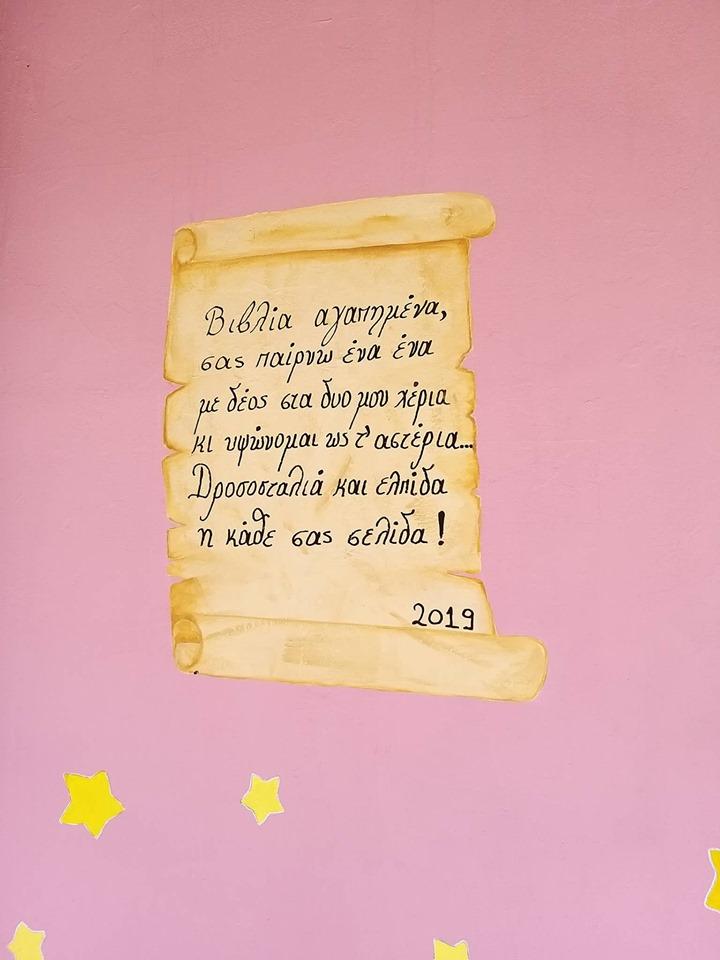 Βιβλία αγαπημένα,
σας παίρνω ένα ένα
με δέος στα δυο μου χέρια
κι υψώνομαι ως τ' αστέρια...
Δροσοσταλιά και ελπίδα
η κάθε σας σελίδα!
2019